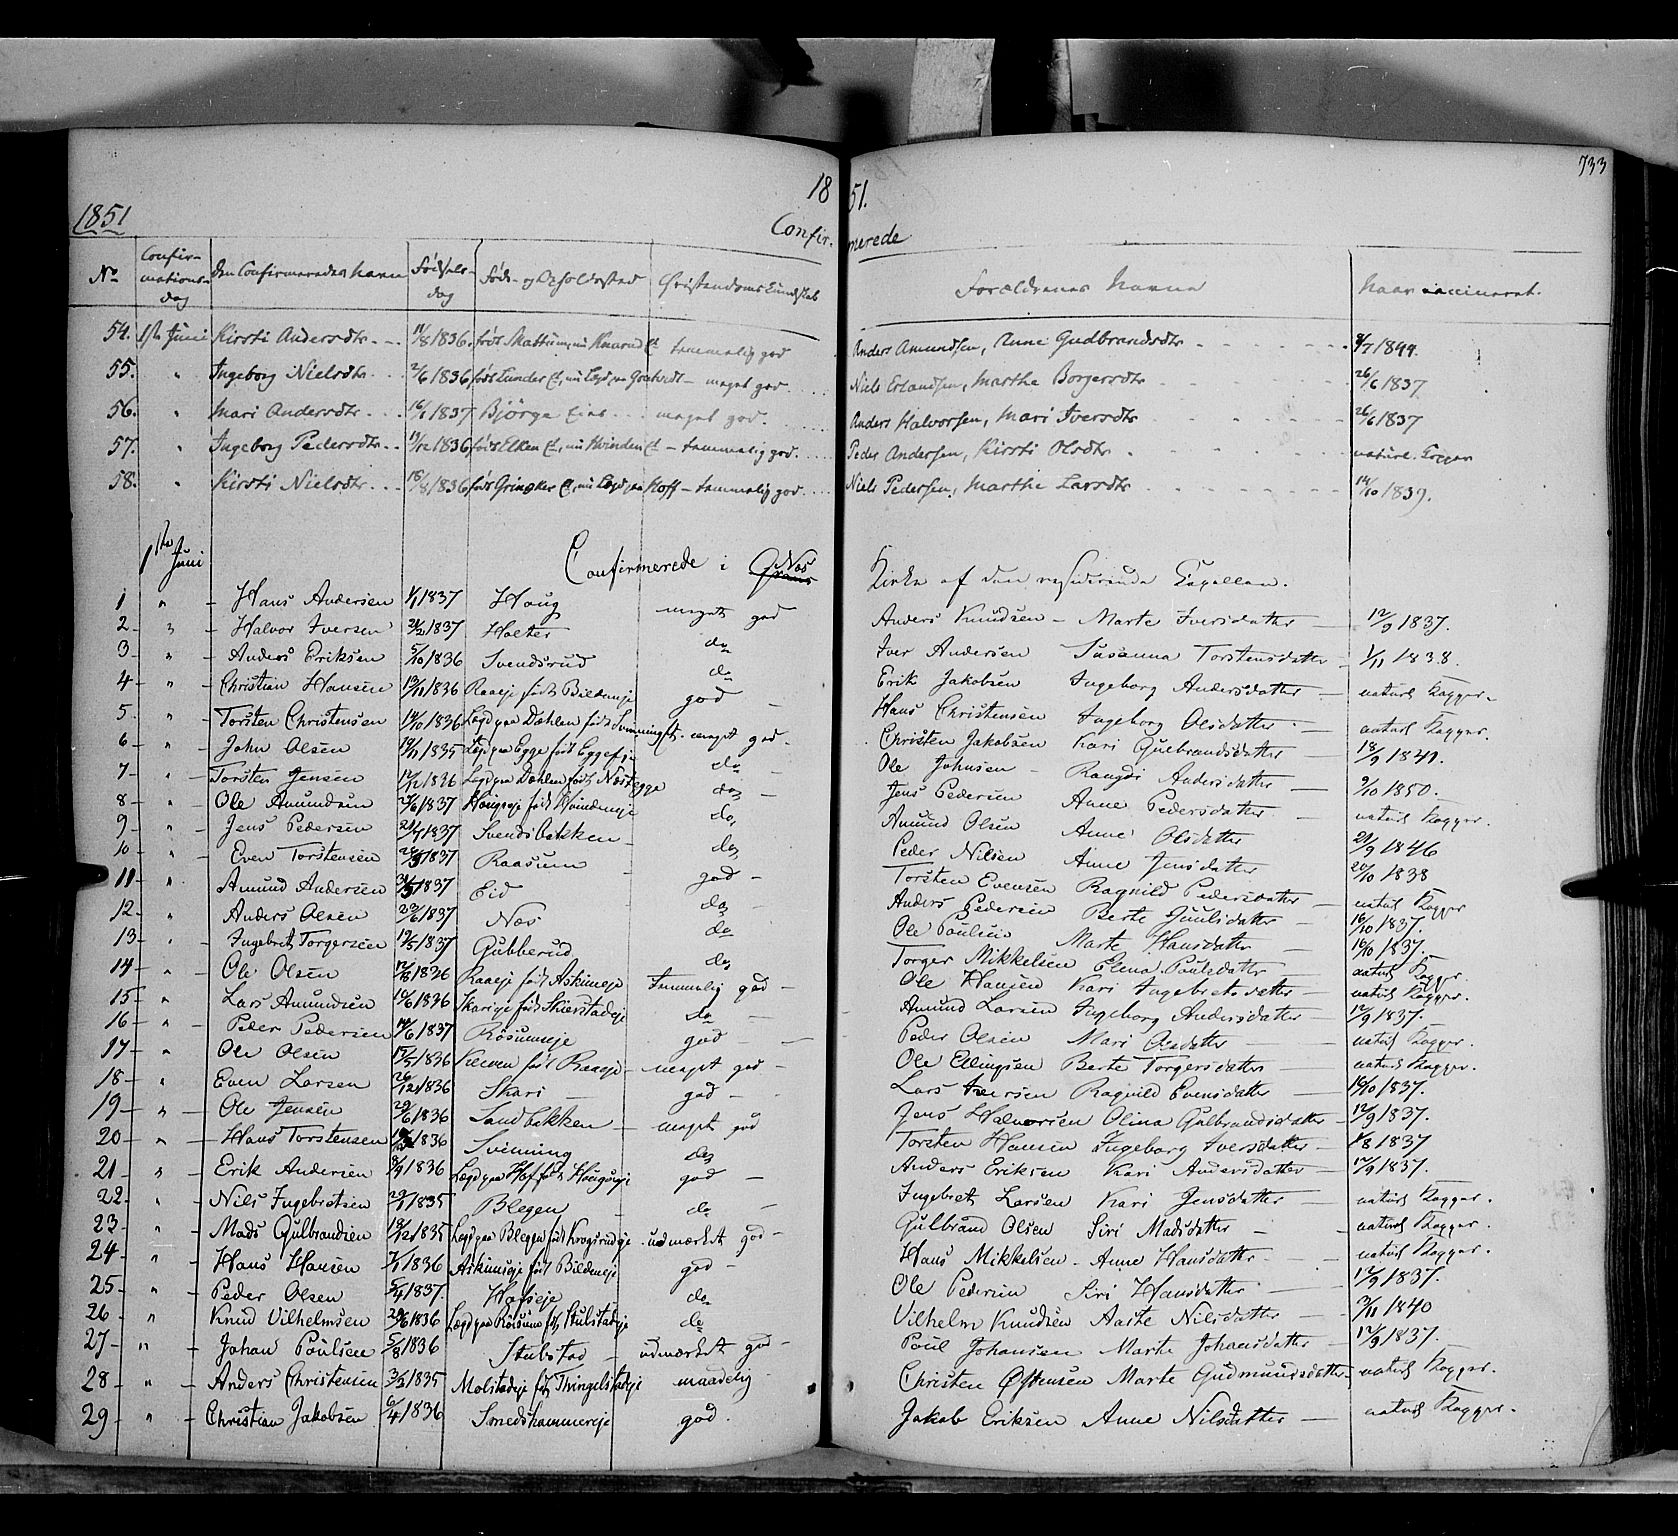 733
18 51.
1851
Confir- merede
No Confir-mations-dag den Confirmeredes Navn Fødsels-dag Føde- og Opholdssted Christendoms Kundskab Forældrenes Navne Naar vaccineret.
54. 1ste Juni Kirsti Andersdtr 11/8 1836. født Skattum, nu tammelig god Anders Amundsen, Anne Gudbrandsdtr 8/7 1844.
55. " Ingeborg Nielsdtr 2/6 1836 født Lunder meget god Niels Erlandsen, Marthe Borgersdtr 26/6 1837
56. " Mari Andersdtr 16/1 1837 Bjørge Eie meget god. Anders Halvorsen, Mari Iversdtr 26/6 1837
57. " Ingeborg Pedersdtr 19/12 1836 født nu Hvinden tammelig god. Peder Andersen, Kirsti Olsdtr naturl. Kopper
58. " Kirsti Nielsdtr 1836 født Grinaker nu Lægd paa Hoff tammelig god Niels Pedersen, Marthe Larsdtr 14/10 1839.
1ste Juni Confirmerede i Næs Kirke af den residerende Capellan.
1 " Hans Andersen 1/1 1837 Haug meget god Anders Knudsen Marte Iversdatter 12/9 1837.
2 " Halvor Iversen 21/2 1837 Holter do Iver Andersen Susanna Torstensdatter 1/11 1838.
3 " Anders Eriksen 5/10 1836 Svendsrud do Erik Jakobsen Ingeborg Andersdatter naturl Kopper
4 " Christian Hansen 19/11 1836 Raaeje født Bildeneje god Hans Christensen Ingeborg Olsdatter naturl Kopper.
5. " Torsten Christensen 14/10 1836 Lægd paa Dæhlen født meget god Christen Jakobsen Kari Gulbrandsdatter 18/9 1841.
6 " John Olsen 19/11 1835 Lægd paa Egge født Eggeeje do Ole Johnsen Rangdi Andersdatter 9/10 1850.
7 " Torsten Jensen 12/12 1836 Lægd paa Dæhlen født Næsegge do Jens Pedersen Anne Pedersdatter naturl Kopper.
8 " Ole Amundsen 1837 Hougseje født Hvindeneje do Amund Olsen Anne Olsdatter 21/9 1846
9 " Jens Pedersen 21/7 1837 Svendsbakken do Peder Nilsen Anne Jensdatter 20/10 1838
10 " Even Torstensen 1837 Raasum god Torsten Evensen Ragnild Pedersdatter naturl Kopper
11 " Amund Andersen 1837 Eid do Anders Pedersen Berte Guulsdatter 16/10 1837.
12 " Anders Olsen 22/6 1837 Næs do Ole Poulsen Marte Hansdatter 10/10 1837.
13 " Ingebret Torgersen 19/5 1837 Gubberud do Torger Mikkelsen Elena Poulsdatter naturl Kopper
14 " Ole Olsen 1836 Raaeje født Askimeje Tammelig god Ole Hansen Kari Ingebretsdatter naturl Kopper.
15 " Lars Amundsen 10/6 1836 Skarieje født Skierstadeje do Amund Larsen Ingeborg Andersdatter 12/9 1837.
16 " Peder Pedersen 1837 Røsumeje god Peder Olsen Mari Olsdatter naturl Kopper.
17 " Ole Olsen 17/5 1836 født Raaeje meget god Ole Ellingsen Berte Torgersdatter naturl Kopper.
18 " Even Larsen 26/12 1836 Skari god Lars Iversen Ragnild Evensdatter 10/10 1837.
19 " Ole Jensen 29/6 1836 Sandbakken meget god Jens Halvorsen Olina Gulbrandsdatter 12/9 1837.
20 " Hans Torstensen 1836 Svinning do Torsten Hansen Ingeborg Iversdatter 1837
21 " Erik Andersen 8/9 1836 Lægd paa Hof født Hougseje god Anders Eriksen Kari Andersdatter 12/9 1837.
22 " Nils Ingebretsen 1835 Blegen do Ingebret Larsen Kari Jensdatter naturl Kopper.
23 " Mads Gulbrandsen 18/12 1835 Lægd paa Blegen født Krogsrudeje udmærket god Gulbrand Olsen Siri Madsdatter naturl Kopper.
24 " Hans Hansen 1836 Askimseje født Bildeneje god Hans Mikkelsen Anne Hansdatter naturl Kopper.
25 " Peder Olsen 5/4 1837 do Ole Pedersen Siri Hansdatter 12/9 1837.
26 " Knud Vilhelmsen 29/6 1836 Lægd paa Røsum født do Vilhelm Knudsen Aaste Nilsdatter 9/11 1840
27 " Johan Poulsen 5/8 1836 Stubstad udmærket god Poul Johansen Marte Johansdatter 12/9 1837.
28 " Anders Christensen 3/3 1835 Molstadeje født Thingelstadeje maadelig Christen Østensen Marte Gudmundsdatter naturl Kopper.
29 " Christian Jakobsen 6/4 1836 Smedshammereje god. Jakob Eriksen Anne Nilsdatter naturl Kopper.